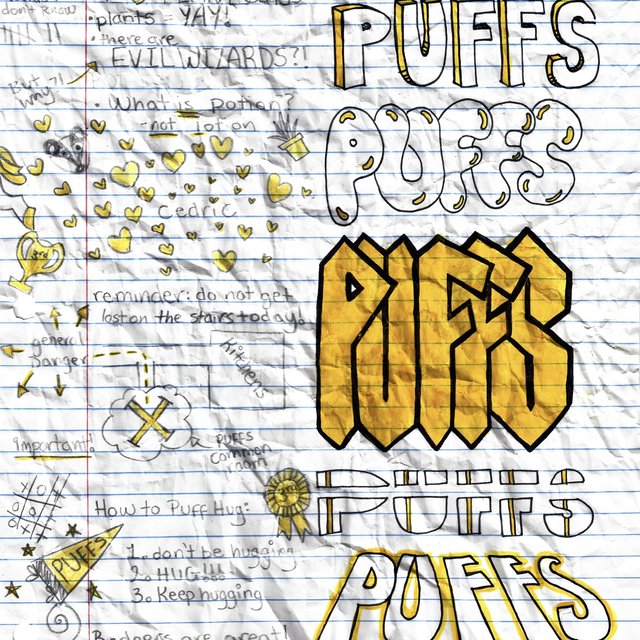 don't know
plants = YAY!
• there are
EVIL WIZARDS?!
But ?!
why
• What is potion?
=not lotion
cedric
3rd
reminder: do not get
lost on the stairs today!
general
Danger
kitchens
X
PUFFS
common
room
important!
How to Puff Hug:
1. don't be hugging
2. HUG!!!
3. Keep hugging
PUFFS
Badgers are great!
PUFFS
PUFFS
PUFFS
PUFFS
PUFFS